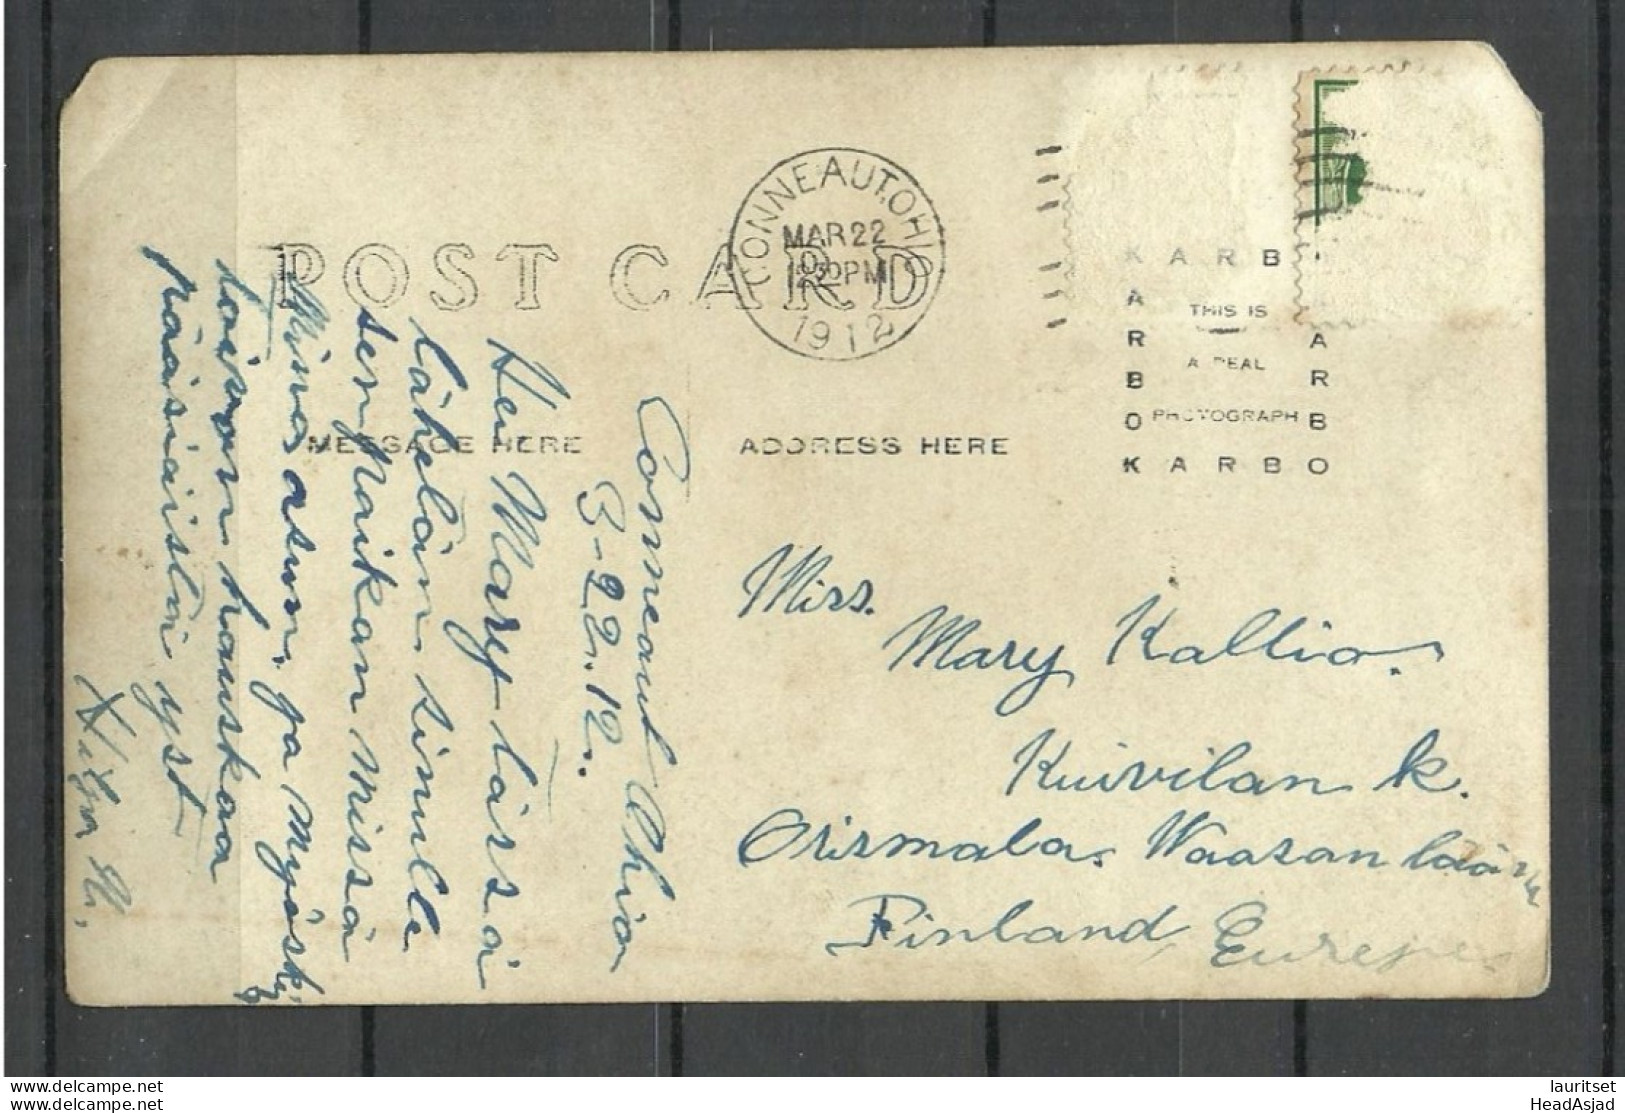 CONNEAUT, OHIO
MAR 22
PM
1912
POST CARD
MESSAGE HERE
ADDRESS HERE
KARBO
THIS IS
A REAL
PHOTOGRAPH
KARBO
Conneaut Ohio
3-22.12.
Hei Mary tässä
lähetän sinulle
sen paikan missä
Minä asun, ja myöski
toivon hauskaa
pääsiäistä
Miss.
Mary Kallio.
Kuivilan k.
Orismala. Waasan lääni
Finland, Europe
lauritset
HeadAsjad
Oldthing.de